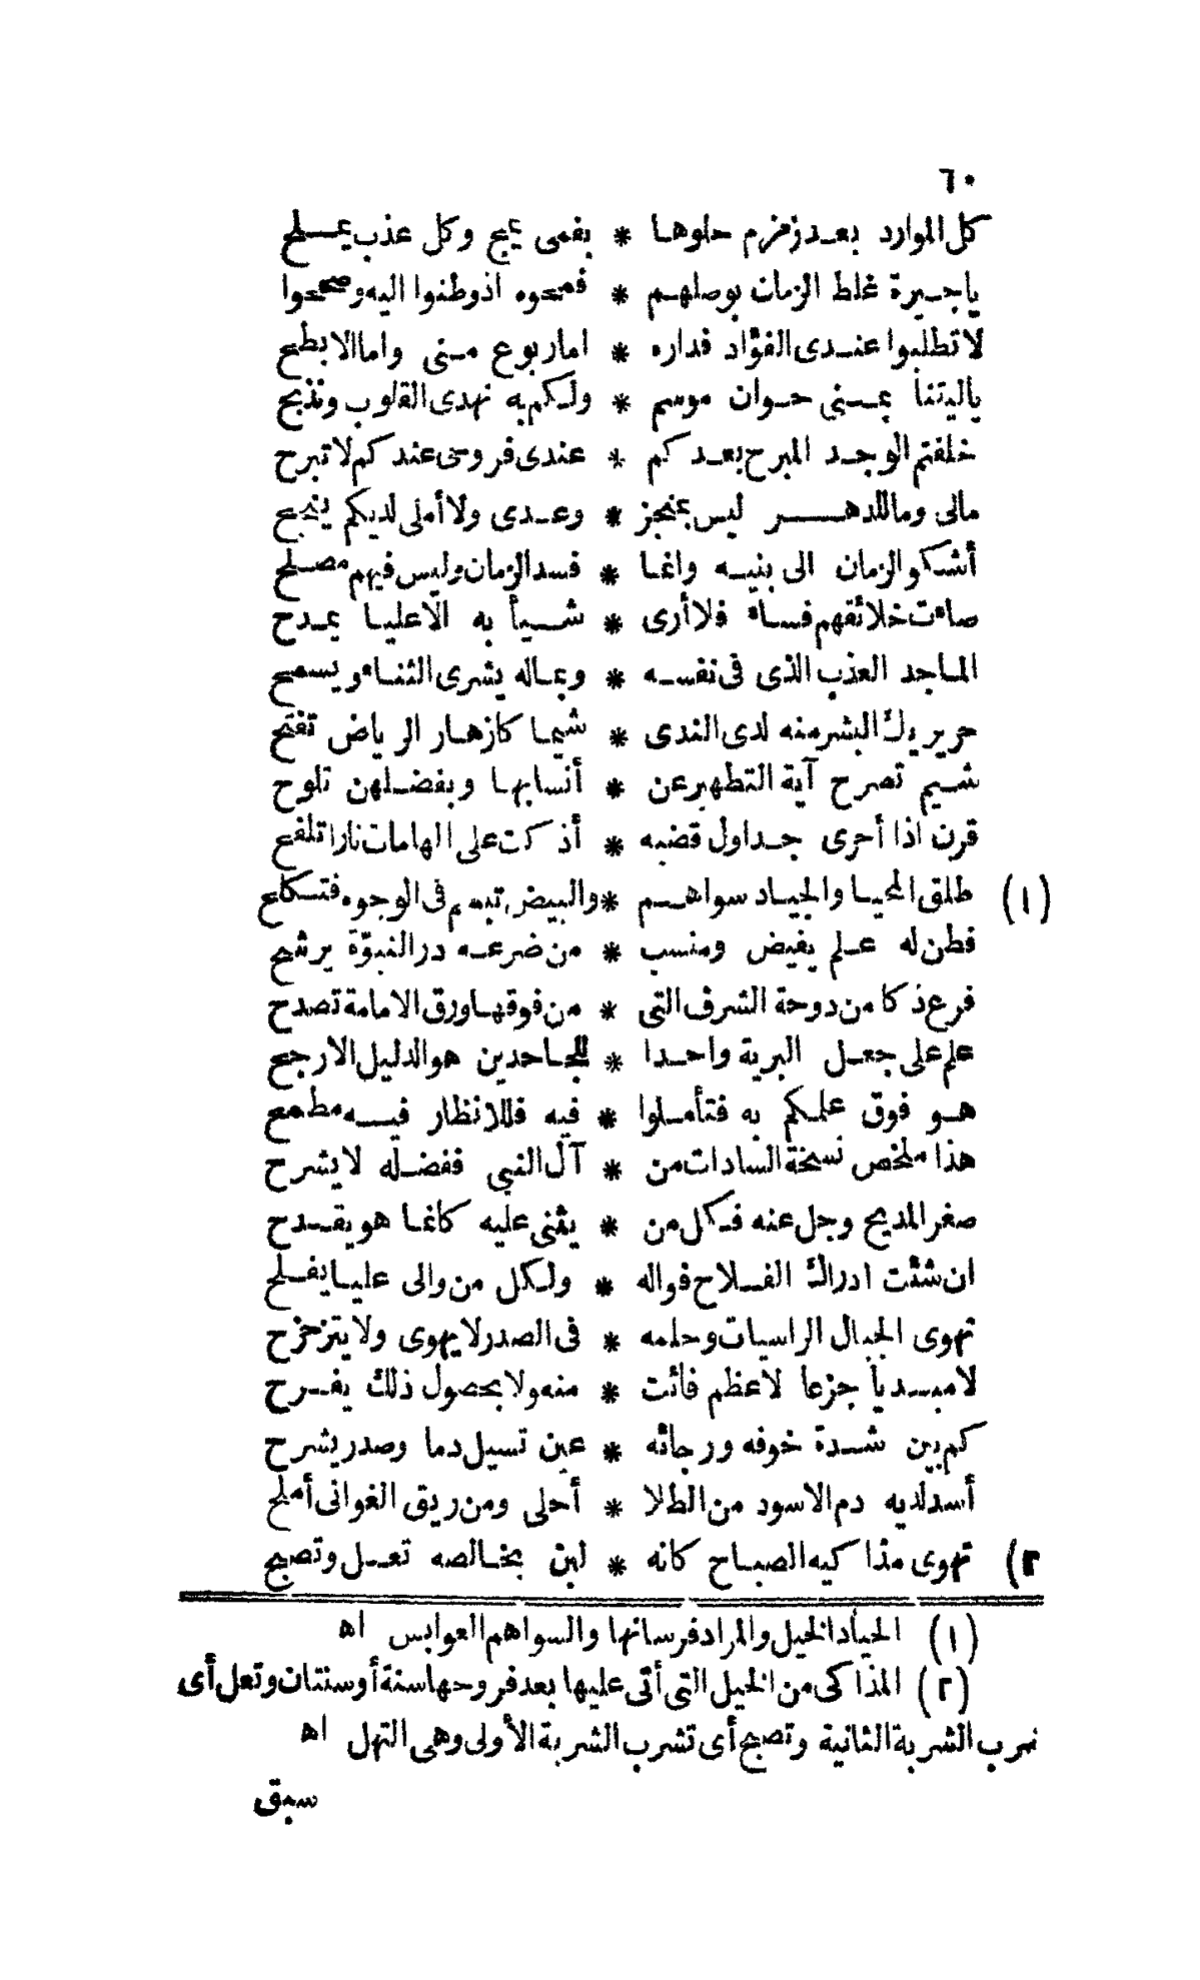 ٦٠
كل الموارد بعد زمزم حلوها * بفمى يمج وكل عذب يملح
ياجيرة غلط الزمان بوصلهم * فمحوه اذ وطنوا اليه وصححوا
لا تطلبوا عندى الفؤاد فداره * اما ربوع منى واما الابطح
ياليتنا بمنى حوان موسم * ولكم به نهدى القلوب ونذبح
خلفتم الوجد المبرح بعدكم * عندى فروحى عندكم لا تبرح
مالى وماللدهر ليس بمنجز * وعدى ولا أملى لديكم ينجح
أشكو الزمان الى بنيه وانما * فسد الزمان وليس فيهم مصلح
ساءت خلائقهم فساء فلا أرى * شيأ به الا عليا يمدح
الماجد العذب الذى فى نفسه * وبماله يشرى الثناء ويسمح
حر يريك البشر منه لدى الندى * شيما كازهار الرياض تفتح
شيم تصرح آية التطهير عن * أنسابها وبفضلهن تلوح
قرن اذا أجرى جداول قضبه * أذكت على الهامات نارا تلفح
(١) طلق المحيا والجياد سواهم * والبيض تبسم فى الوجوه فتكلح
فطن له علم يفيض ومنسب * من ضرعه در النبوّة يرشح
فرع ذكا من دوحة الشرف التى * من فوقها ورق الامامة تصدح
علم على جعل البرية واحدا * للجاحدين هو الدليل الارجح
هو فوق علمكم به فتأملوا * فيه فللانظار فيه مطمح
هذا ملخص نسخة السادات من * آل النبى ففضله لا يشرح
صغر المديح وجل عنه فكل من * يثنى عليه كانما هو يقدح
ان شئت ادراك الفلاح فواله * ولكل من والى عليا يفلح
تهوى الجبال الراسيات وحلمه * فى الصدر لا يهوى ولا يتزحزح
لا مبديا جزعا لاعظم فائت * منه ولا بحصول ذلك يفرح
كم بين شدة خوفه ورجائه * عين تسيل دما وصدر يشرح
أسد لديه دم الاسود من الطلا * أحلى ومن ريق الغوانى أملح
٢) تهوى مذا كيه الصباح كانه * لبن بخالصه تعل وتصبح
(١) الجياد الخيل والمراد فرسانها والسواهم العوابس اه
(٢) المذاكى من الخيل التى أتى عليها بعد فروحها سنة أو سنتان وتعل أى
شرب الشربة الثانية وتصبح أى تشرب الشربة الأولى وهى النهل اه
سبق